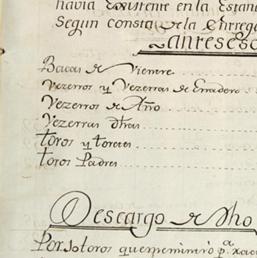 havia Existente en la Estan
Segun Consta de la Entreg
Bacas de Vientre
Vezerros y Vezerras de Erradero
Vezerros de Año
Vezerras dhas
toros y toretes
toros Padres
Descargo de dho
Por toros que